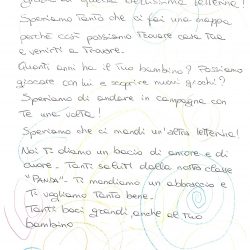 questa bellissima letterina!
Speriamo tanto che ci fai una mappa
perché così possiamo trovare casa tua
e venirti a trovare.
Quanti anni ha il tuo bambino? Possiamo
giocare con lui e scoprire nuovi giochi?
Speriamo di andare in campagna con
te una volta!
Speriamo che ci mandi un'altra letterina!
Noi ti diamo un bacio di amore e di
cuore. Tanti saluti dalla nostra classe
"PANDA". Ti mandiamo un abbraccio e
Ti vogliamo tanto bene.
Tanti baci grandi anche al tuo
bambino